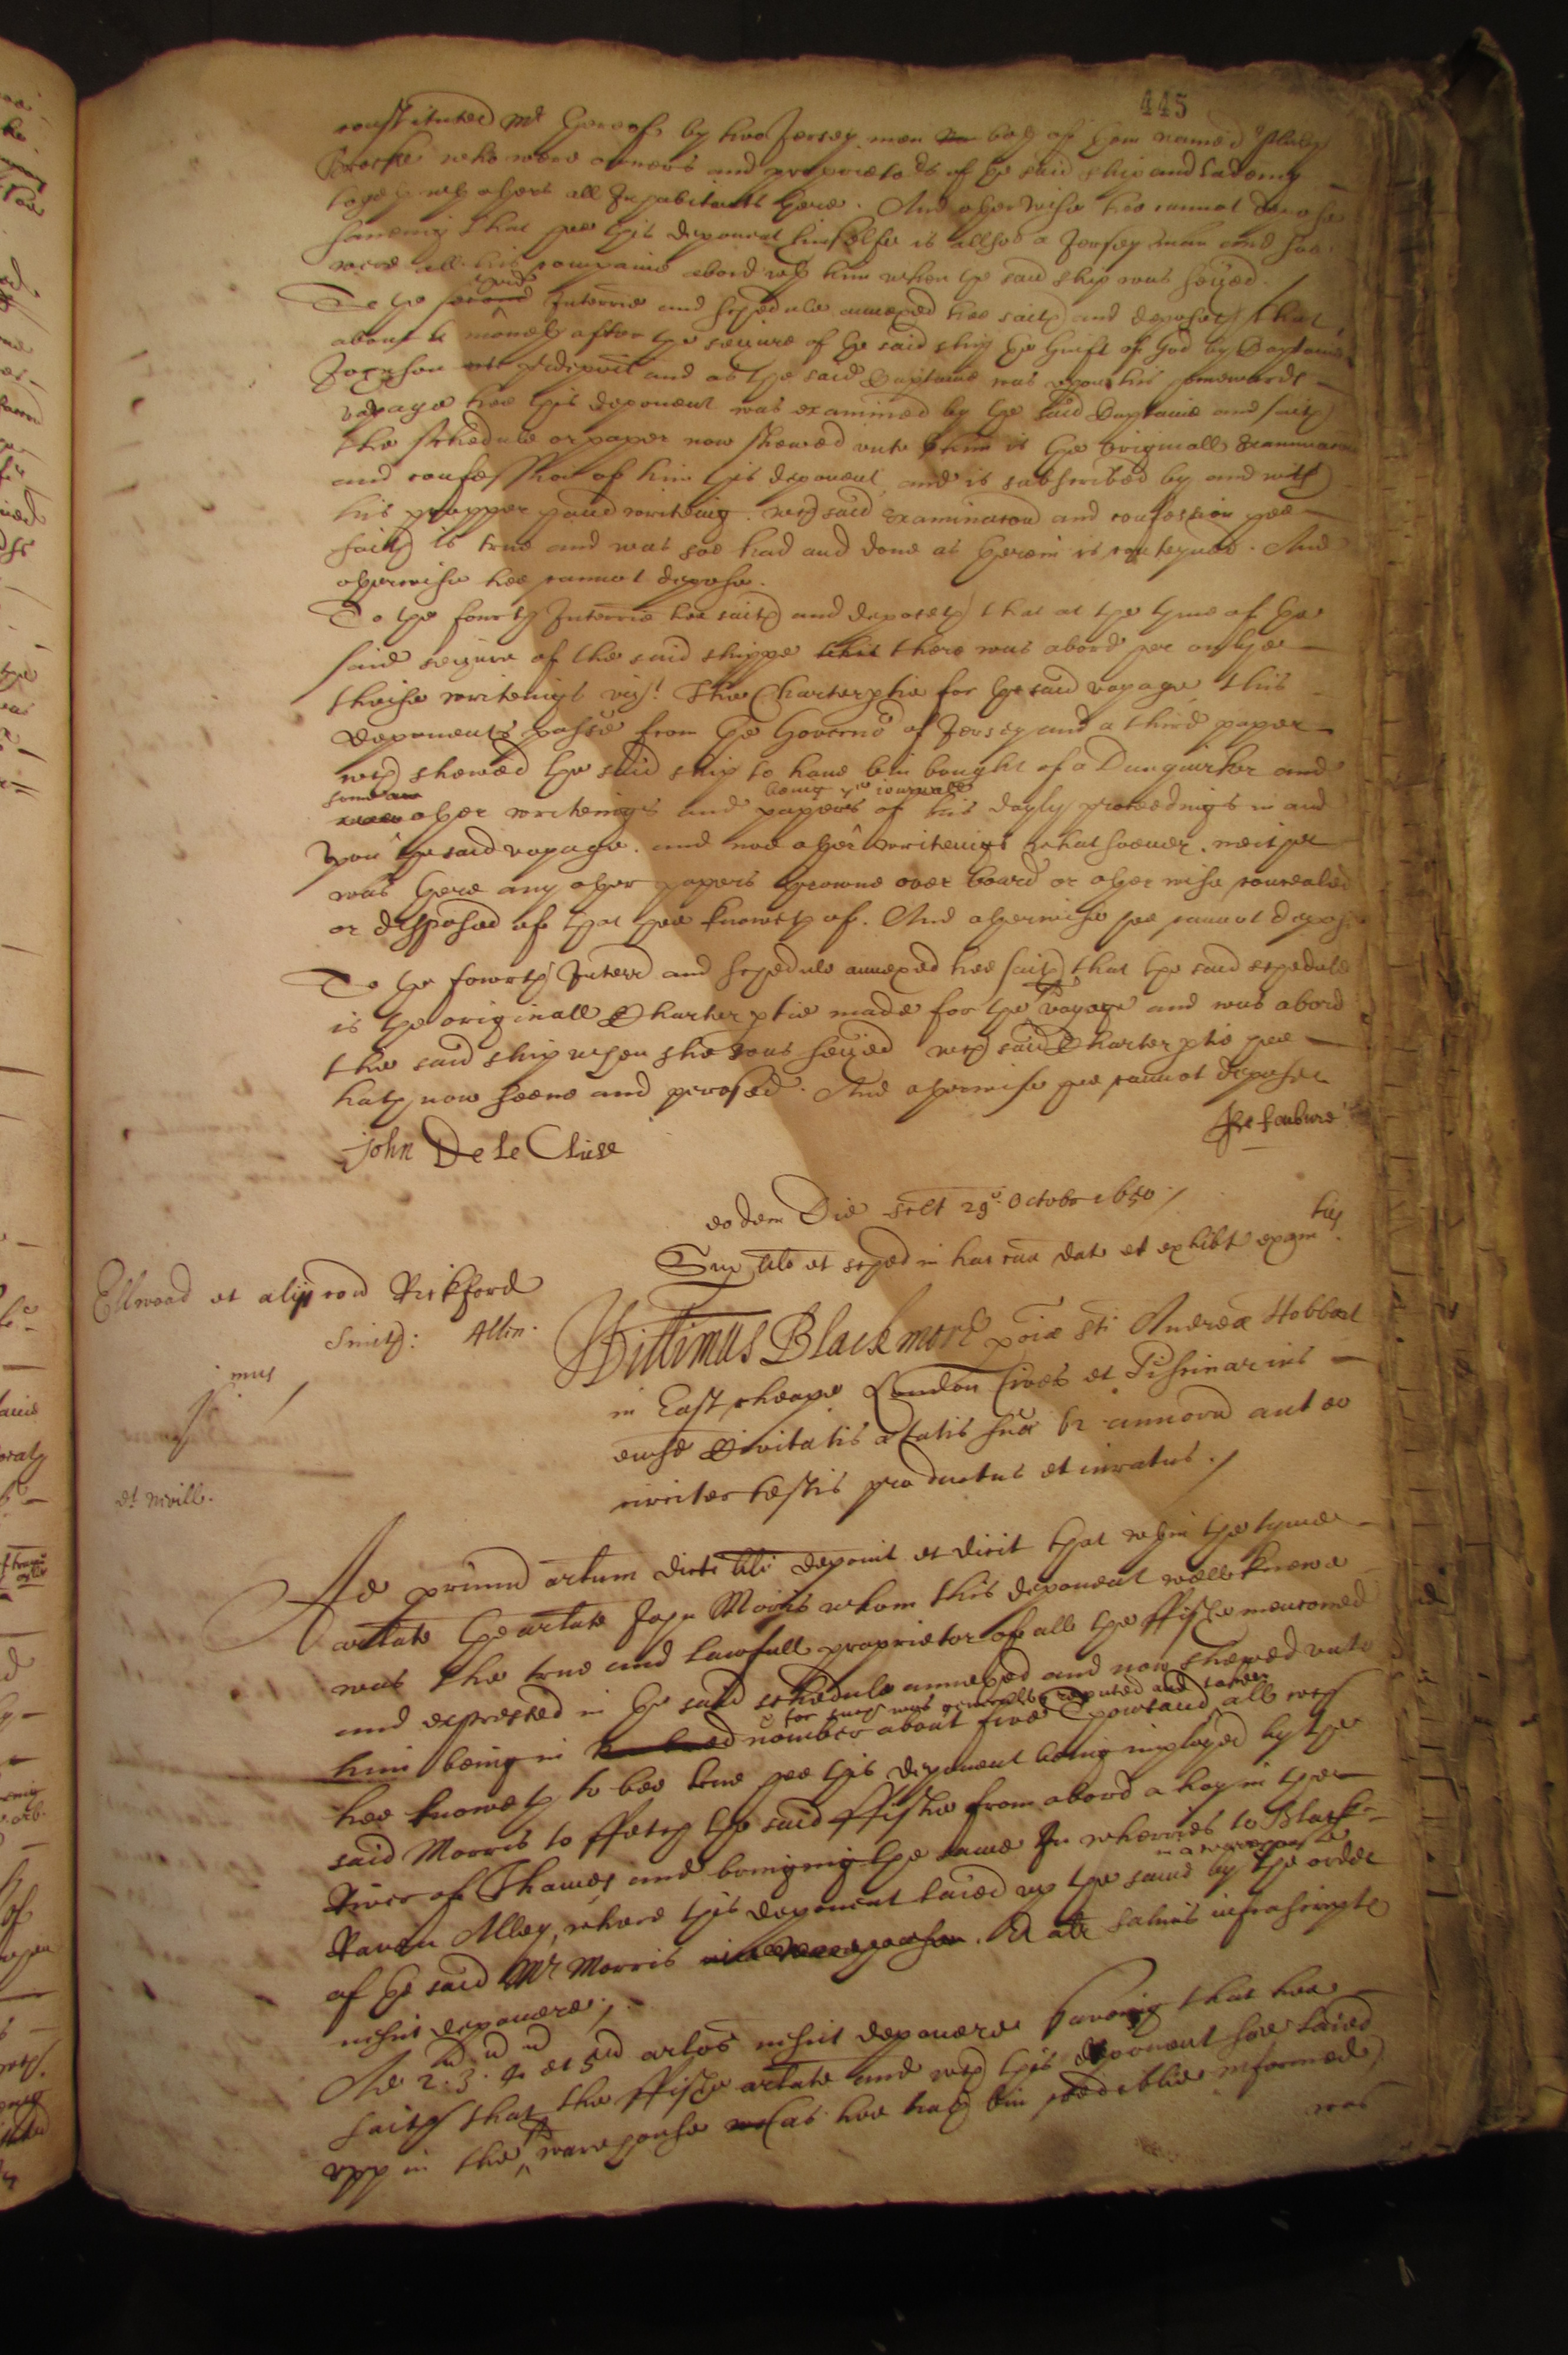 445
constituted Mr thereof by two Jersey men both of them named
who were owners and proprietors of the said ship and ladeing
together with others all Inhabitants there. And otherwise hee cannot depose
saveing that hee this deponent himselfe is allsoe a Jersey man and soe
were all his companie abord with him when the said ship was seized.
To the third Interrie and schedule annexed hee saith and deposeth that
about a moneth after the seizure of the said ship the Guift of God by Captaine
Jochson and as the said Captaine was upon his homewards
voyage hee this deponent was examined by the said Captaine and saith
the schedule or paper now shewed unto him is the originall Examinacon
and confession of him this deponent, and is subscribed by and with
his propper hand writeing. wch said examinacon and confession hee
saith is true and was soe had and done as therein is conteyned. And
otherwise hee cannot depose.
To the fourth Interrie hee saith and deposeth that at the tyme of the
said seizure of the said shippe there was abord her onlye
theise writeings vizt. The Charterptie for the said voyage, this
deponents passe from the Governor of Jersey and a third paper
wch shewed the said ship to have bin bought of a Dunquirker and
some other writeings and papers being ye journall of his dayly proceedings in and
upon the said voyage. and noe other writeings whatsoever. neither
was there any other papers throwne over board or otherwise concealed
or disposed of that hee knoweth of. And otherwise hee cannot depose
To the fowrth Interr and schedule annexed hee saith that the said schedule
is the originall Charterptie made for the voyage and was abord
the said ship when she was seized wch said Charterptie hee
hath now seene and perused. And otherwise hee cannot depose.
john De le Cluse
eodem Die scilt 29o Octobr 1650 /
Sup lilo et sched in hac cua dat et exhibt exam
tus
Ellwood et alij con Rickford
Smith: Allin.
Willimus Blackmore poiae Sti Andreae Hobbart
in East cheape London Cives et Pishinarius
eiusd Civitatis aetatis suae 62 annoru aut eo
circiter testis productus et iuratus. /
mus
dt mvill.
Ad primu artum dicti lili deponit et dicit that wthin the tyme
artlate the artlate John Morris whom this deponent well knowe
was the true and lawfull proprietor of all the ffishe mencioned
and expressed in the said schedule annexed and now shewed unto
for such was generally reputed and taken
him being in nomber about five thowsand, all wch
hee knoweth to bee true hee this deponent being imployed by the
said Morris to ffetch the said ffishe from abord a hoy in the
River of Thames and bringing the same In wherries to Black
Raven Alley, where this deponent laied up the same in a warehouse by the order
of the said Mr Morris. Et alr salvis infrascriptis
nescit deponere /
Ad 2. 3. 4 et 5 artlos nescit deponere Saveing that hee
saith that the ffishe artlate and wch this deponent soe laied
upp in the sd warehouse (as hee hath bin credeblie informed)
was